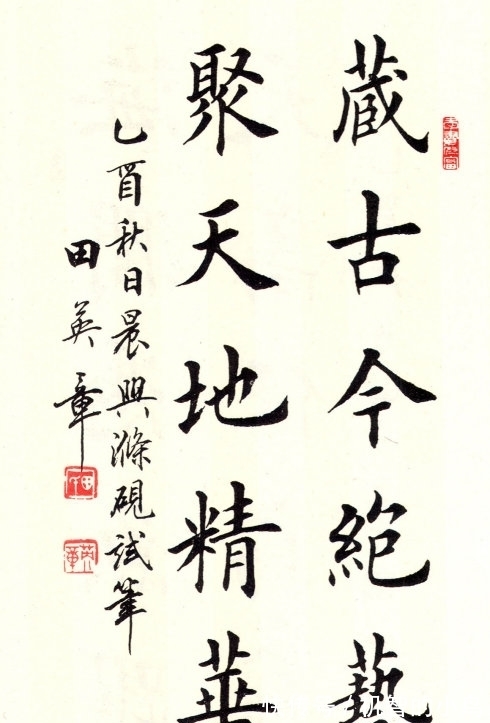 藏古今絕藝
聚天地精華
乙酉秋日晨興滌硯試筆
田英章
田
英章